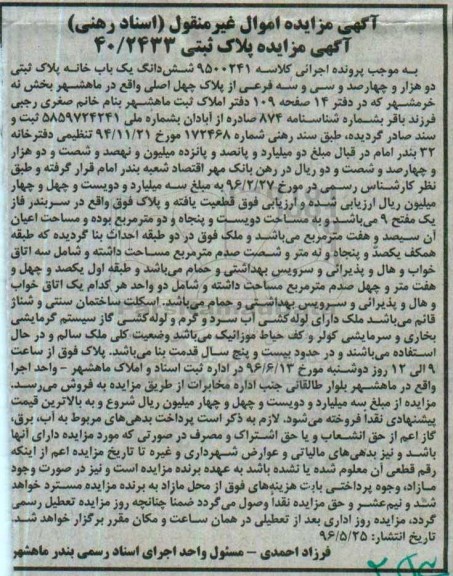 آگهی مزایده اموال غیرمنقول (اسناد رهنی)
آگهی مزایده پلاک ثبتی ۴۰/۲۴۳۳
به موجب پرونده اجرائی کلاسه ۹۵۰۰۲۴۱ شش‌دانگ یک باب خانه پلاک ثبتی
دو هزار و چهارصد و سی و سه فرعی از پلاک چهل اصلی واقع در ماهشهر بخش نه
خرمشهر که در دفتر ۱۴ صفحه ۱۰۹ دفتر املاک ثبت ماهشهر بنام خانم صغری رجبی
فرزند باقر بشماره شناسنامه ۸۷۴ صادره از آبادان بشماره ملی ۵۸۵۹۷۲۴۲۴۱ ثبت و
سند صادر گردیده، طبق سند رهنی شماره ۱۷۲۴۶۸ مورخ ۹۴/۱۱/۲۱ تنظیمی دفترخانه
۳۲ بندر امام در قبال مبلغ دو میلیارد و پانصد و پانزده میلیون و نهصد و شصت و دو هزار
و چهارصد و شصت و دو ریال در رهن بانک مهر اقتصاد شعبه بندر امام قرار گرفته و طبق
نظر کارشناس رسمی در مورخ ۹۶/۲/۲۷ به مبلغ سه میلیارد و دویست و چهل و چهار
میلیون ریال ارزیابی شده و ارزیابی فوق قطعیت یافته و پلاک فوق واقع در سربندر فاز
یک مفتح ۹ می‌باشد و به مساحت دویست و پنجاه و دو مترمربع بوده و مساحت اعیان
آن سیصد و هفت مترمربع می‌باشد و ملک فوق در دو طبقه احداث بنا گردیده که طبقه
همکف یکصد و پنجاه و نه متر و شصت صدم مترمربع مساحت داشته و شامل سه اتاق
خواب و هال و پذیرائی و سرویس بهداشتی و حمام می‌باشد و طبقه اول یکصد و چهل و
هفت متر و چهل صدم مترمربع مساحت داشته و شامل دو واحد هر کدام یک اتاق خواب
و هال و پذیرائی و سرویس بهداشتی و حمام می‌باشد. اسکلت ساختمان سنتی و شناژ
قائم می‌باشد ملک دارای لوله‌کشی آب سرد و گرم و لوله‌کشی گاز سیستم گرمایشی
بخاری و سرمایشی کولر و کف حیاط موزائیک می‌باشد وضعیت کلی ملک سالم و در حال
استفاده می‌باشند و در حدود بیست و پنج سال قدمت بنا می‌باشد. پلاک فوق از ساعت
۹ الی ۱۲ روز دوشنبه مورخ ۹۶/۶/۱۳ در اداره ثبت اسناد و املاک ماهشهر - واحد اجرا
واقع در ماهشهر بلوار طالقانی جنب اداره مخابرات از طریق مزایده به فروش می‌رسد.
مزایده از مبلغ سه میلیارد و دویست و چهل و چهار میلیون ریال شروع و به بالاترین قیمت
پیشنهادی نقدا فروخته می‌شود. لازم به ذکر است پرداخت بدهی‌های مربوط به آب، برق،
گاز اعم از حق انشعاب و یا حق اشتراک و مصرف در صورتی که مورد مزایده دارای آنها
باشد و نیز بدهی‌های مالیاتی و عوارض شهرداری و غیره تا تاریخ مزایده اعم از اینکه
رقم قطعی آن معلوم شده یا نشده باشد به عهده برنده مزایده است و نیز در صورت وجود
مازاد، وجوه پرداختی بابت هزینه‌های فوق از محل مازاد به برنده مزایده مسترد خواهد
شد و نیم‌عشر و حق مزایده نقدا وصول می‌گردد ضمنا چنانچه روز مزایده تعطیل رسمی
گردد، مزایده روز اداری بعد از تعطیلی در همان ساعت و مکان مقرر برگزار خواهد شد.
تاریخ انتشار: ۹۶/۵/۲۵
فرزاد احمدی - مسئول واحد اجرای اسناد رسمی بندر ماهشهر